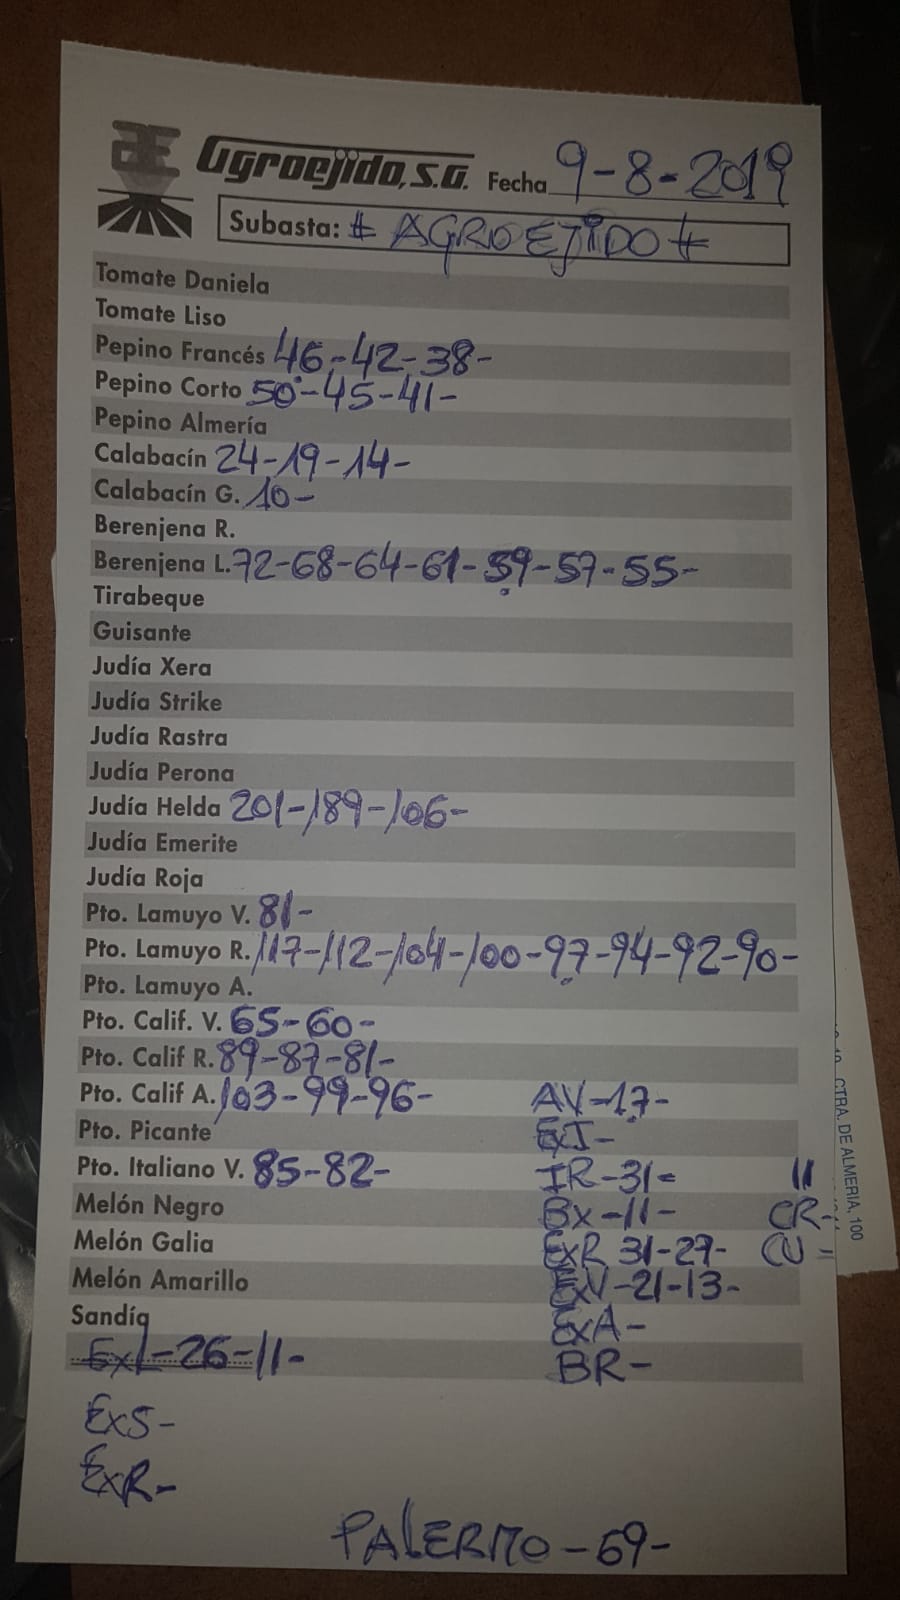 Agroejido, S.A. Fecha 9-8-2019
Subasta: # AGROEJIDO #
Tomate Daniela
Tomate Liso
Pepino Francés 46-42-38-
Pepino Corto 50-45-41-
Pepino Almería
Calabacín 24-19-14-
Calabacín G. 10-
Berenjena R.
Berenjena L. 72-68-64-61-59-57-55-
Tirabeque
Guisante
Judía Xera
Judía Strike
Judía Rastra
Judía Perona
Judía Helda 201-189-106-
Judía Emerite
Judía Roja
Pto. Lamuyo V. 81-
Pto. Lamuyo R. 117-112-104-100-97-94-92-90-
Pto. Lamuyo A.
Pto. Calif. V. 65-60-
Pto. Calif R. 89-87-81-
Pto. Calif A. 103-99-96- AV-17-
Pto. Picante ExI-
Pto. Italiano V. 85-82- IR-31= 11
Melón Negro Bx-11- CR-
Melón Galia ExR 31-27-
Melón Amarillo ExV-21-13-
Sandía ExA-
ExL-26-11- BR-
ExS-
ExR-
PALERMO-69-
CTRA. DE ALMERIA, 100